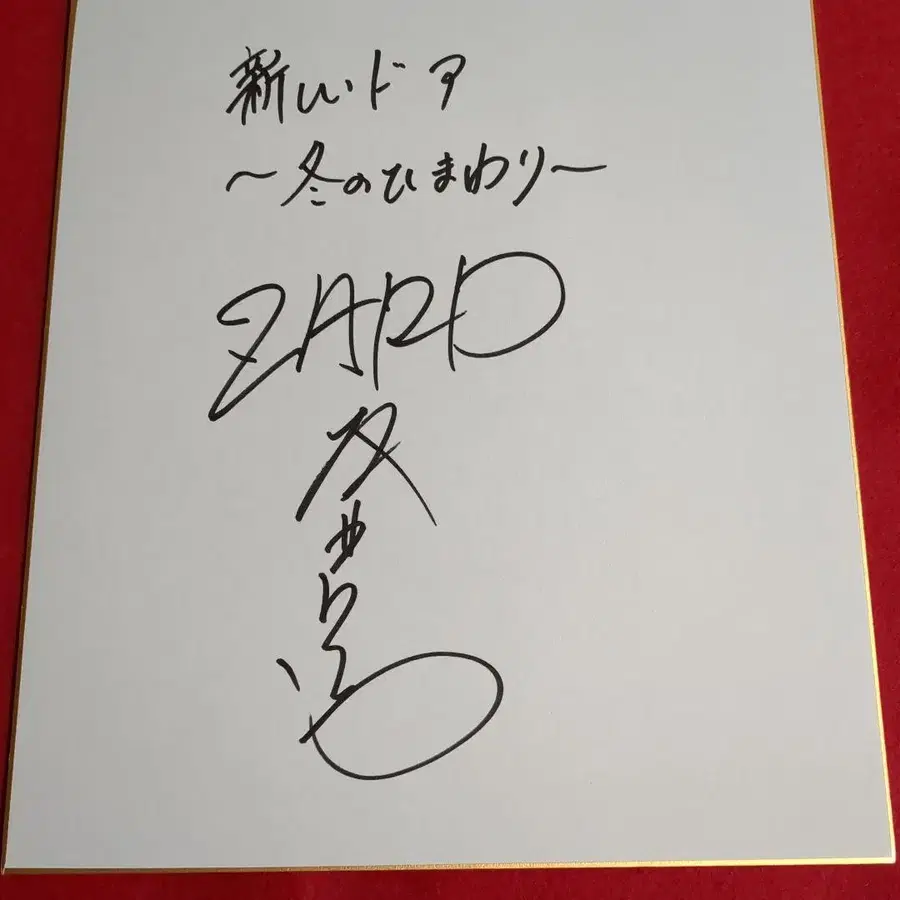 新しいドア
〜冬のひまわり〜
ZARD
坂井泉水